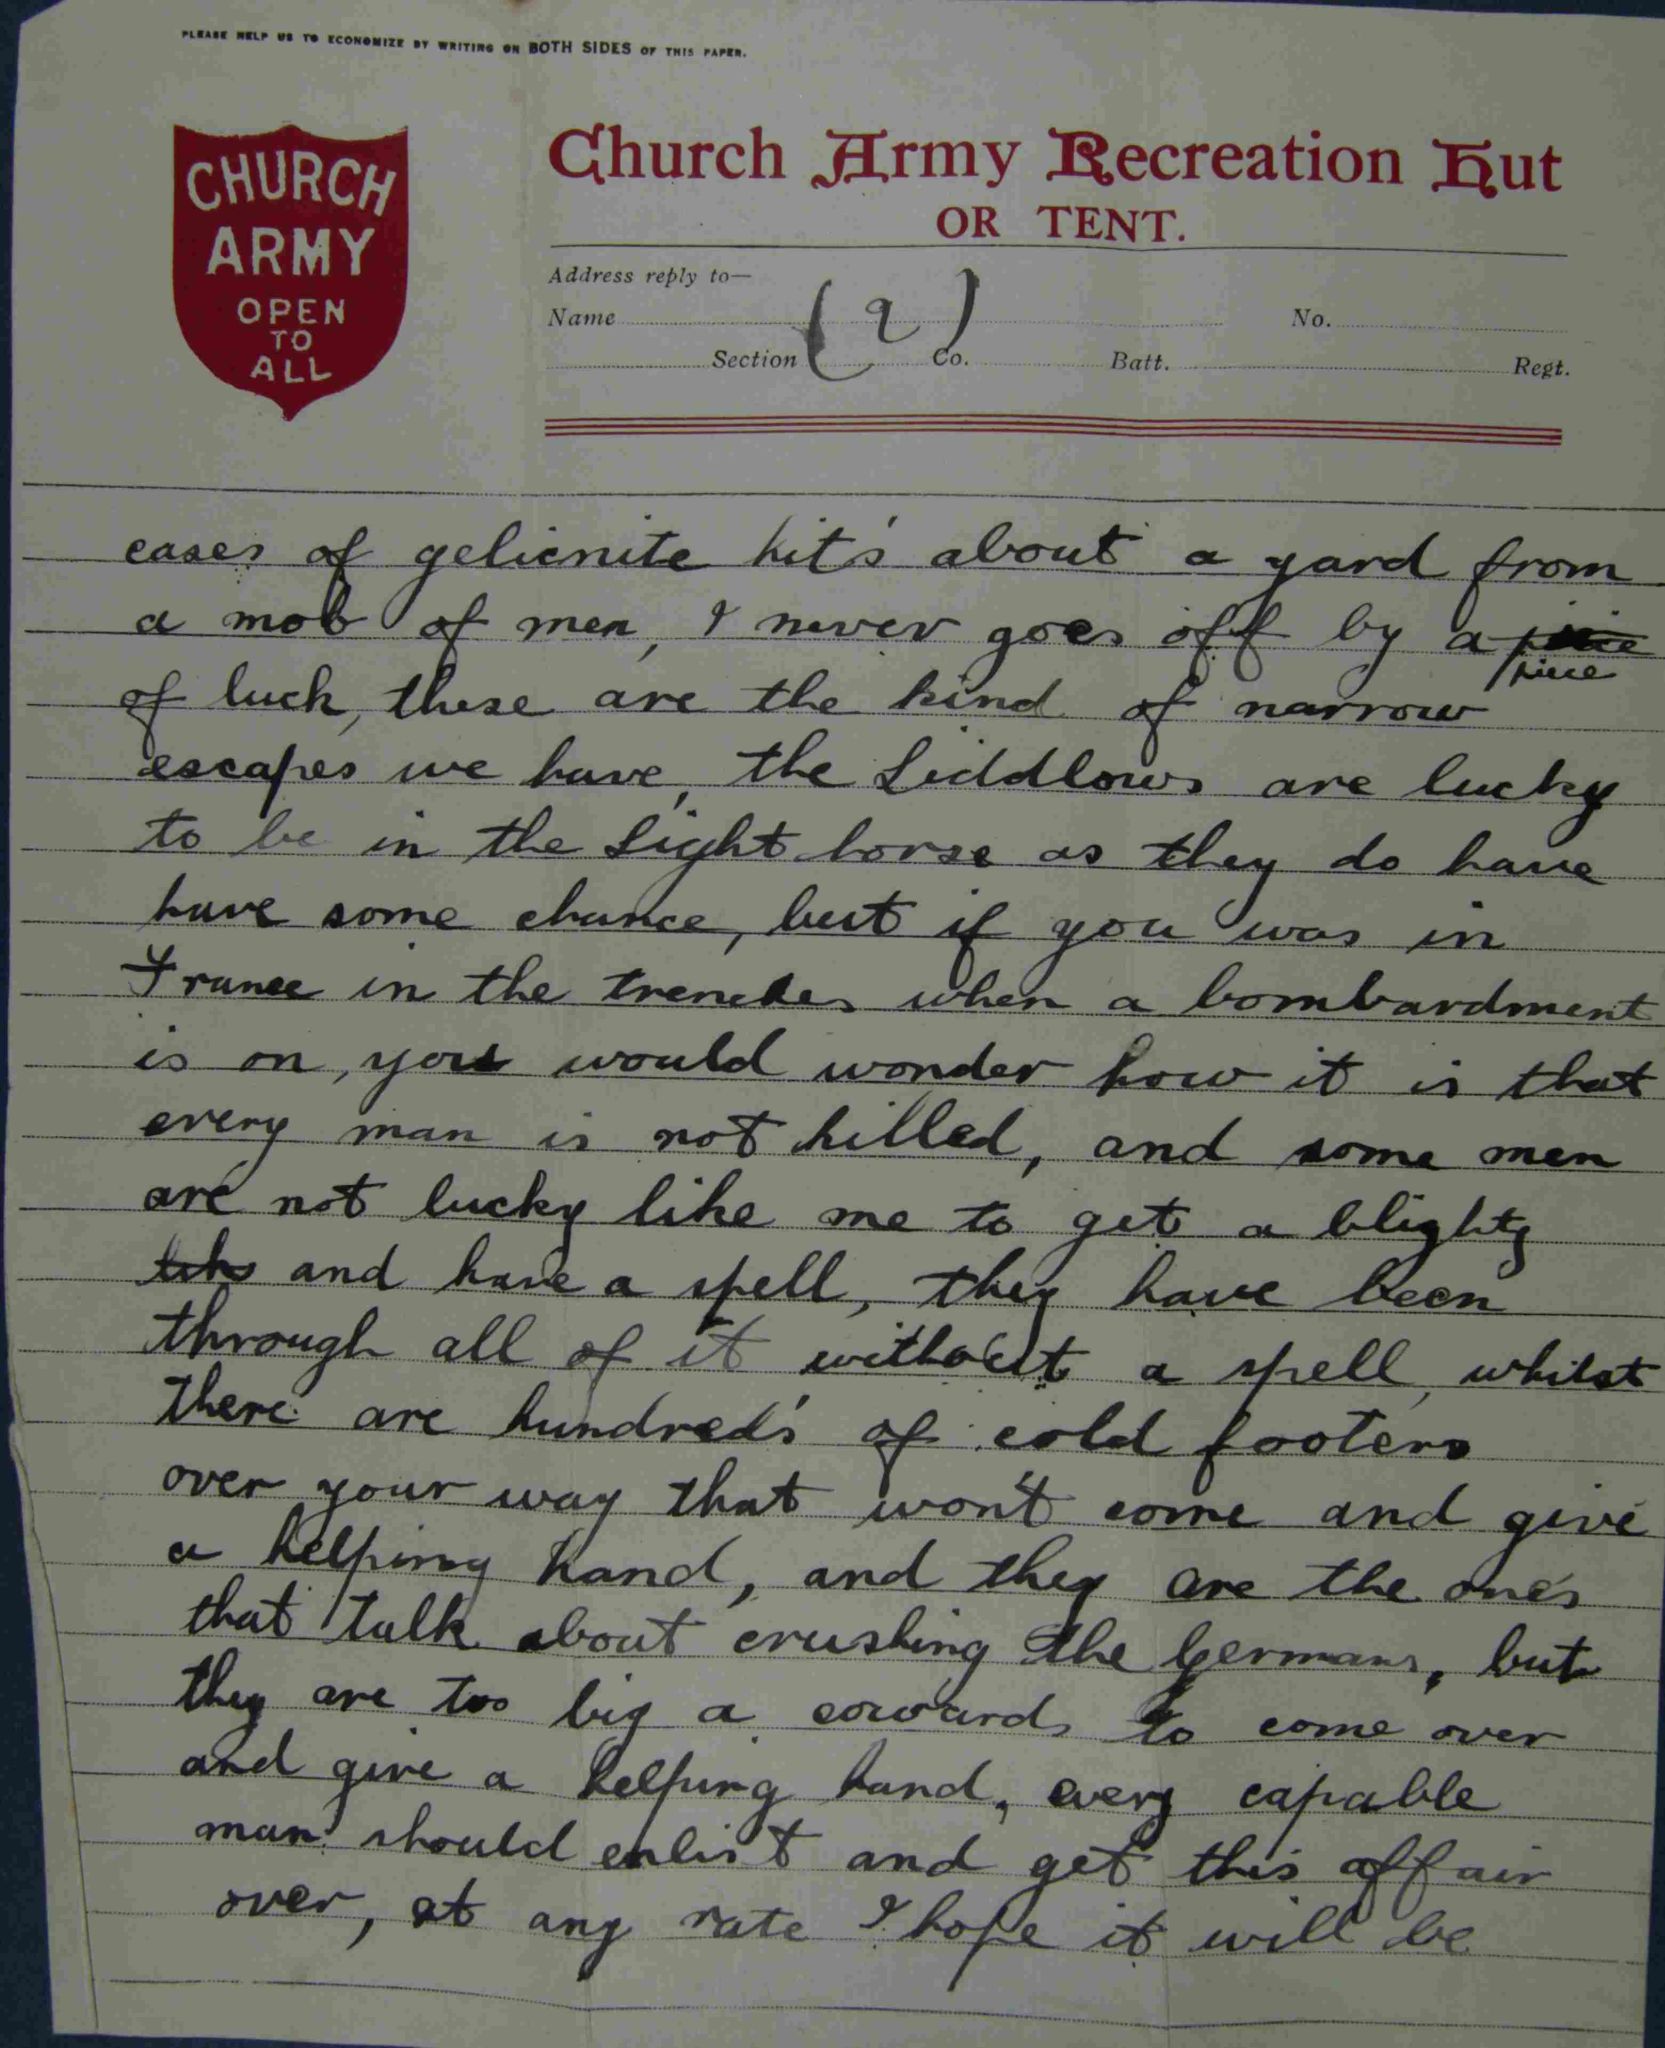 PLEASE HELP US TO ECONOMIZE BY WRITING ON BOTH SIDES OF THIS PAPER.
CHURCH
ARMY
OPEN
TO
ALL
Church Army Recreation Hut
OR TENT.
Address reply to—
Name No.
Section Co. Batt. Regt.
(9)
cases of gelicnite hit's about a yard from
a mob of men, & never goes off by a
piece
of luck, these are the kind of narrow
escapes we have, the Liddlows are lucky
to be in the Light horse as they do have
have some chance, but if you was in
France in the trenches when a bombardment
is on, you would wonder how it is that
every man is not killed, and some men
are not lucky like me to get a blighty
and have a spell, they have been
through all of it without a spell, whilst
there are hundred's of cold footers
over your way that won't come and give
a helping hand, and they are the one's
that talk about crushing the Germans, but
they are too big a cowards to come over
and give a helping hand, every capable
man should enlist and get this affair
over, at any rate I hope it will be